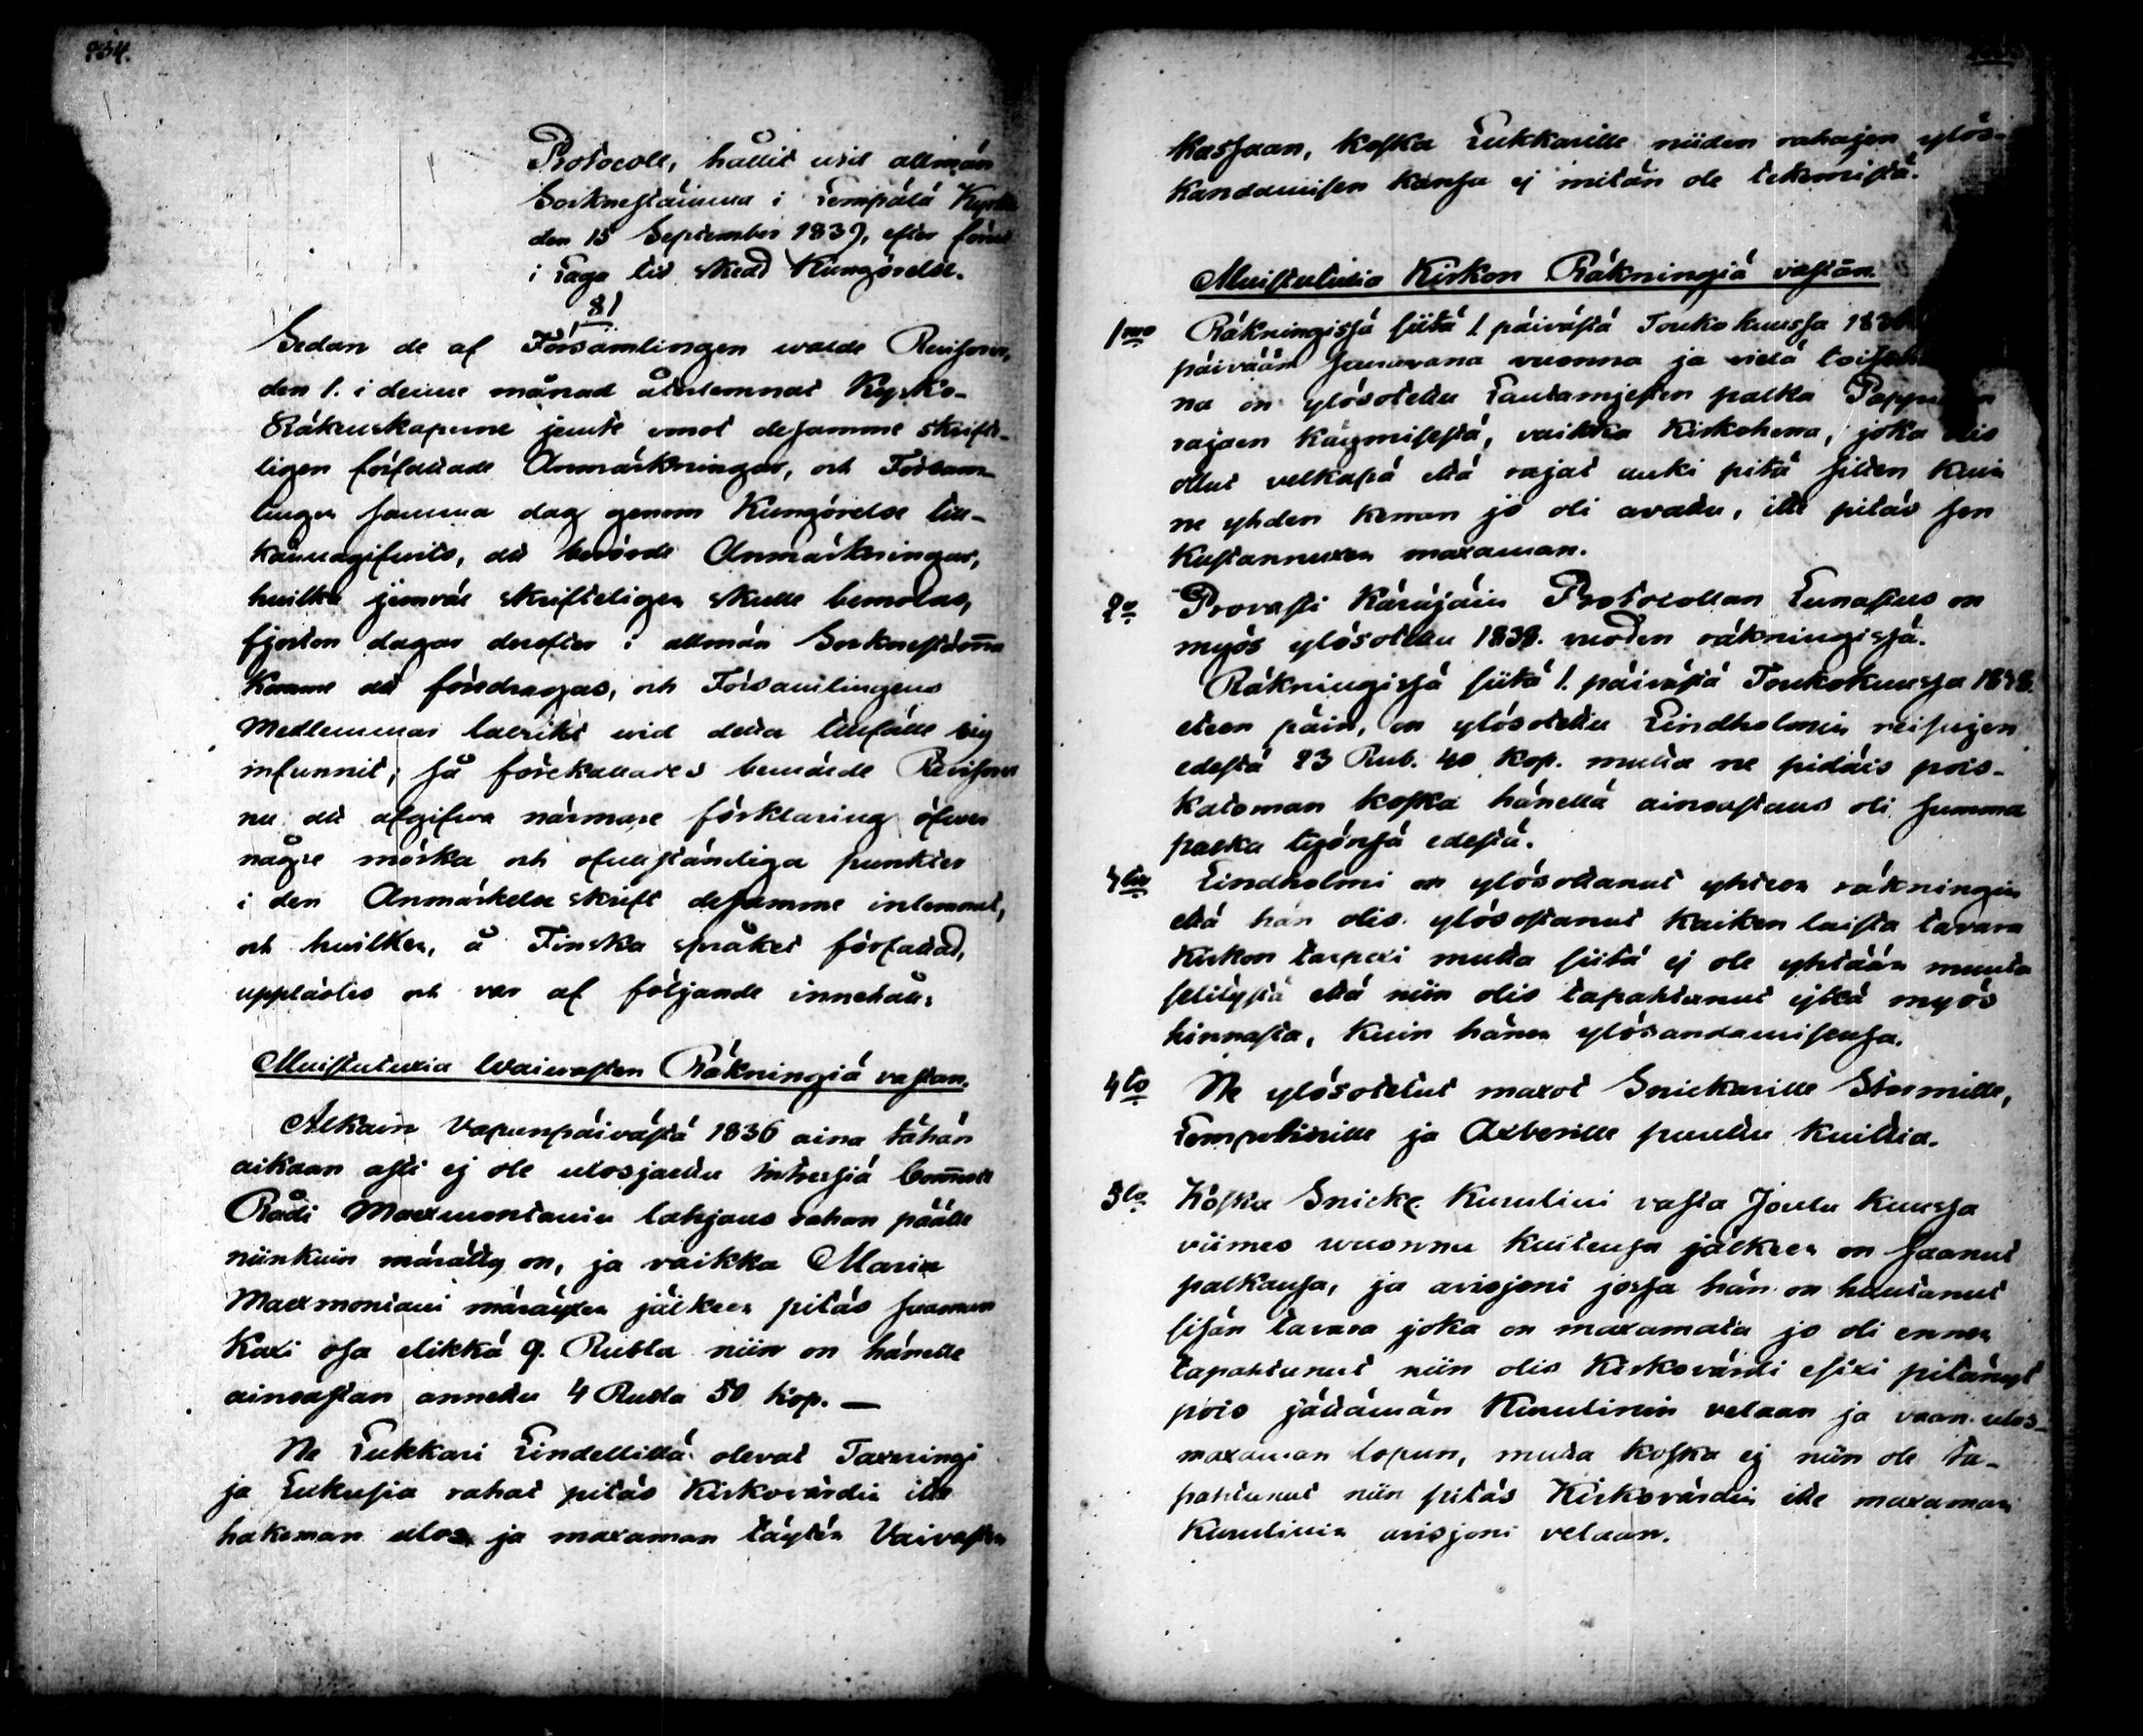 234.
Protocoll, hållit wid allmän
Socknestämma i Lempälä Kyrka
den 15 September 1839, efter förut
i Laga tid skedd Kungörelse.
§1
Sedan de af Församlingen walde Revisorer,
den 1. i denne månad återlemnat Kyrko-
Räkenskaperne jemte emot desamme skrift-
ligen författade Anmärkningar, och Försam-
lingen samma dag genom Kungörelse till-
kännagifwits, att berörde Anmärkningar,
hwilka jemwäl skrifteligen skulle bemötas,
fjorton dagar derefter i allmän Sockneståm̄a
komme att föredragas, och Församlingens
Medlemmar talrikt wid detta tillfälle sig
infunnit; så förekallades bemälde Revisorer
nu att afgifwa närmare förklaring öfwer
någre mörka och ofullständiga punkter
i den Anmärkelse skrift desamme inlemnat,
och hwilken, å Finska språket författad,
upplästes och var af följande innehåll:
Muistutuxia Waiwasten Räkningiä vastan.
Alkain Vapunpäivästä 1836 aina tähän
aikaan asti ej ole ulosjaettu intressiä Com̄erse
Rådi Maexmontanin lahjans rahan päälle
niinkuin määrätty on, ja vaikka Maria
Maexmontani määräyxen jälkeen pitäs saaman
Kaxi osa elikkä 9. Rubla niin on hänelle
ainoastan annettu 4 Rubla 50 kop. —
Ne Lukkari Lindellillä olevat Taxeringi
ja Lukusia rahat pitäs Kirkovärdin itte
hakeman ulos ja maxaman täytén Vaivasten
kassaan, koska Lukkarille niiden rahajen ylös-
kandamisen kansa ej mitän ole tekemistä.
Muistutuxia Kirkon Räkningiä vastan.
1mo Räkningissä siitä 1 päivästä Toukokuussa
päivään samavana vuonna ja vielä
na on ylösotettu Lautamjesten palka
rajaen käymisestä, vaikka Kirkoherra, joka olis
ollut velkapä että rajat auki pitä sitten kuin
ne yhden kerran jo oli avattu, itte pitäs sen
kustannuxen maxaman.
2o Provasti Käräjäin Protocollan Lunastus on
myös ylösotettu 1838. vuoden räkningissä.
Räkningissä siitä 1. päivästä Toukokuussa 1838.
eteen päin, on ylösotettu Lindholmin reisujen
edestä 23 Rub. 40 Kop. mutta ne pidäis pois-
katoman koska hänellä ainoastans oli summa
palka työnsä edestä.
3tio Lindholmi on ylösottanut yhteen räkningin
että hän olis ylösostanut kaiken laista tavara
Kirkon tarpexi mutta siitä ej ole yhtään muuta
selitystä että niin olis tapahtunut eikä myös
hinnasta, kuin hänen ylösandamisensa.
4to Ne ylösotetut maxot Snickarille Stormille,
Lempelinille ja Axberille puuttu kuittia.
5to Koska Snicka. Kurulini vasta Joulu kuussa
viimes wuonna kuitensa jälkeen on saanut
palkansa, ja avisjoni jossa hän on huutanut
sisän tavara joka on maxamata jo oli ennen
tapahtunut niin olis Kirkovärdi ensixi pitänyt
pois jättämän Kurulinin velaan ja vaan ulos-
maxaman lopun, mutta koska ej niin ole ta-
pahtunut niin pitäs Kirkovärdin itte maxaman
Kurulinin avisjoni velaan.